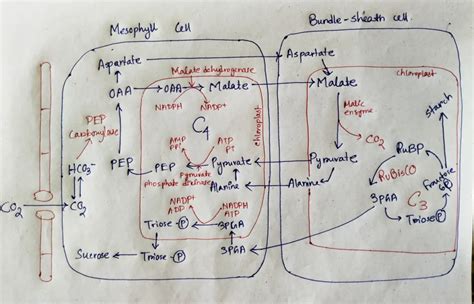 Mesophyll Cell
Bundle-sheath cell
Aspartate
Aspartate
Malate dehydrogenase
OAA
OAA
Malate
Malate
chloroplast
NADPH
NADP+
C4
chloroplast
PEP
Carboxylase
Malic
enzyme
starch
AMP
PPi
ATP
Pi
CO2
HCO3-
PEP
PEP
Pyruvate
Pyruvate
RuBP
Pyruvate
phosphate dikinase
Alanine
Alanine
RuBisCO
fructose
6P
CO2
CO2
NADP+
ADP
NADPH
ATP
3PGA
C3
Triose-P
3PGA
Triose P
Sucrose
Triose-P
3PGA